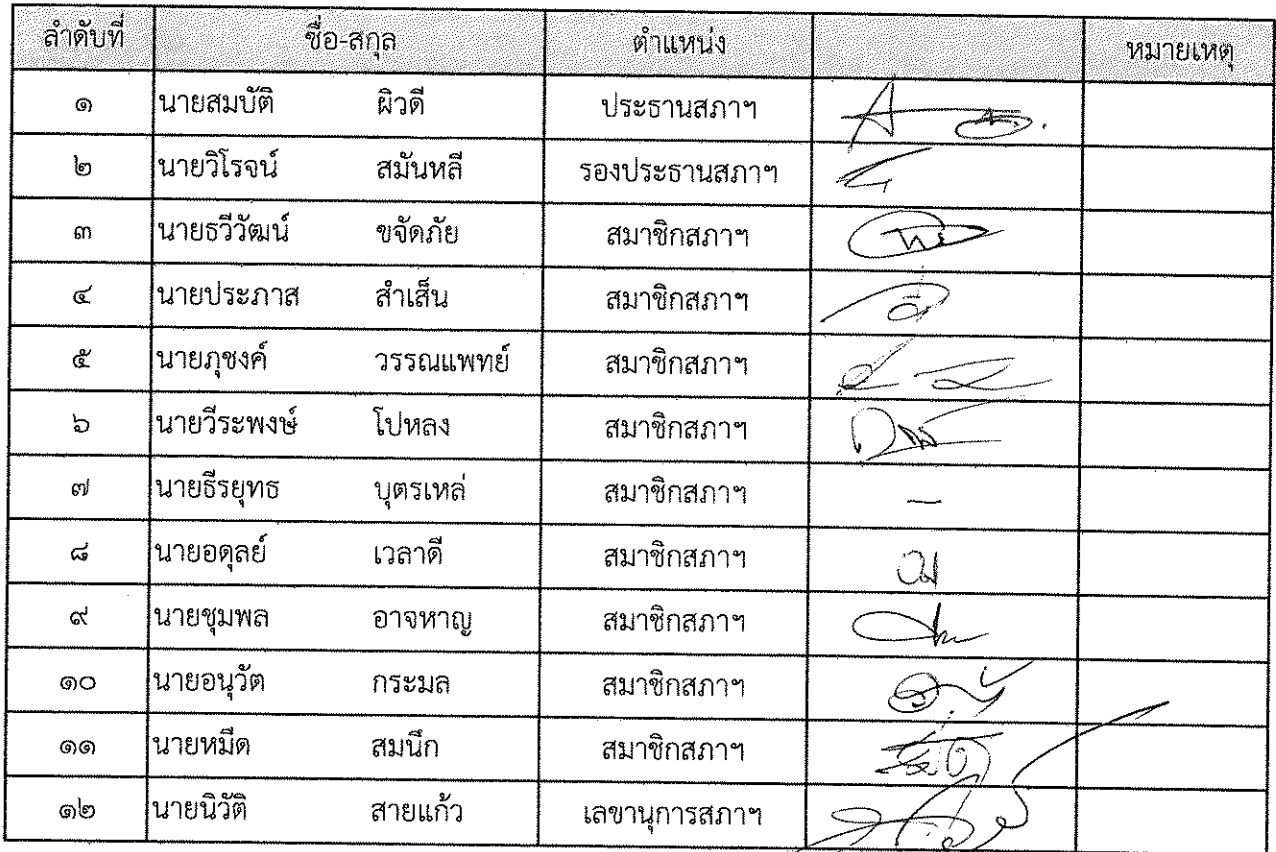 ลำดับที่ ชื่อ-สกุล ตำแหน่ง หมายเหตุ
๑ นายสมบัติ ผิวดี ประธานสภาฯ
๒ นายวิโรจน์ สมันหลี รองประธานสภาฯ
๓ นายธวีวัฒน์ ขจัดภัย สมาชิกสภาฯ
๔ นายประภาส สำเส็น สมาชิกสภาฯ
๕ นายภุชงค์ วรรณแพทย์ สมาชิกสภาฯ
๖ นายวีระพงษ์ โปหลง สมาชิกสภาฯ
๗ นายธีรยุทธ บุตรเหล่ สมาชิกสภาฯ –
๘ นายอดุลย์ เวลาดี สมาชิกสภาฯ
๙ นายชุมพล อาจหาญ สมาชิกสภาฯ
๑๐ นายอนุวัต กระมล สมาชิกสภาฯ
๑๑ นายหมีด สมนึก สมาชิกสภาฯ
๑๒ นายนิวัติ สายแก้ว เลขานุการสภาฯ